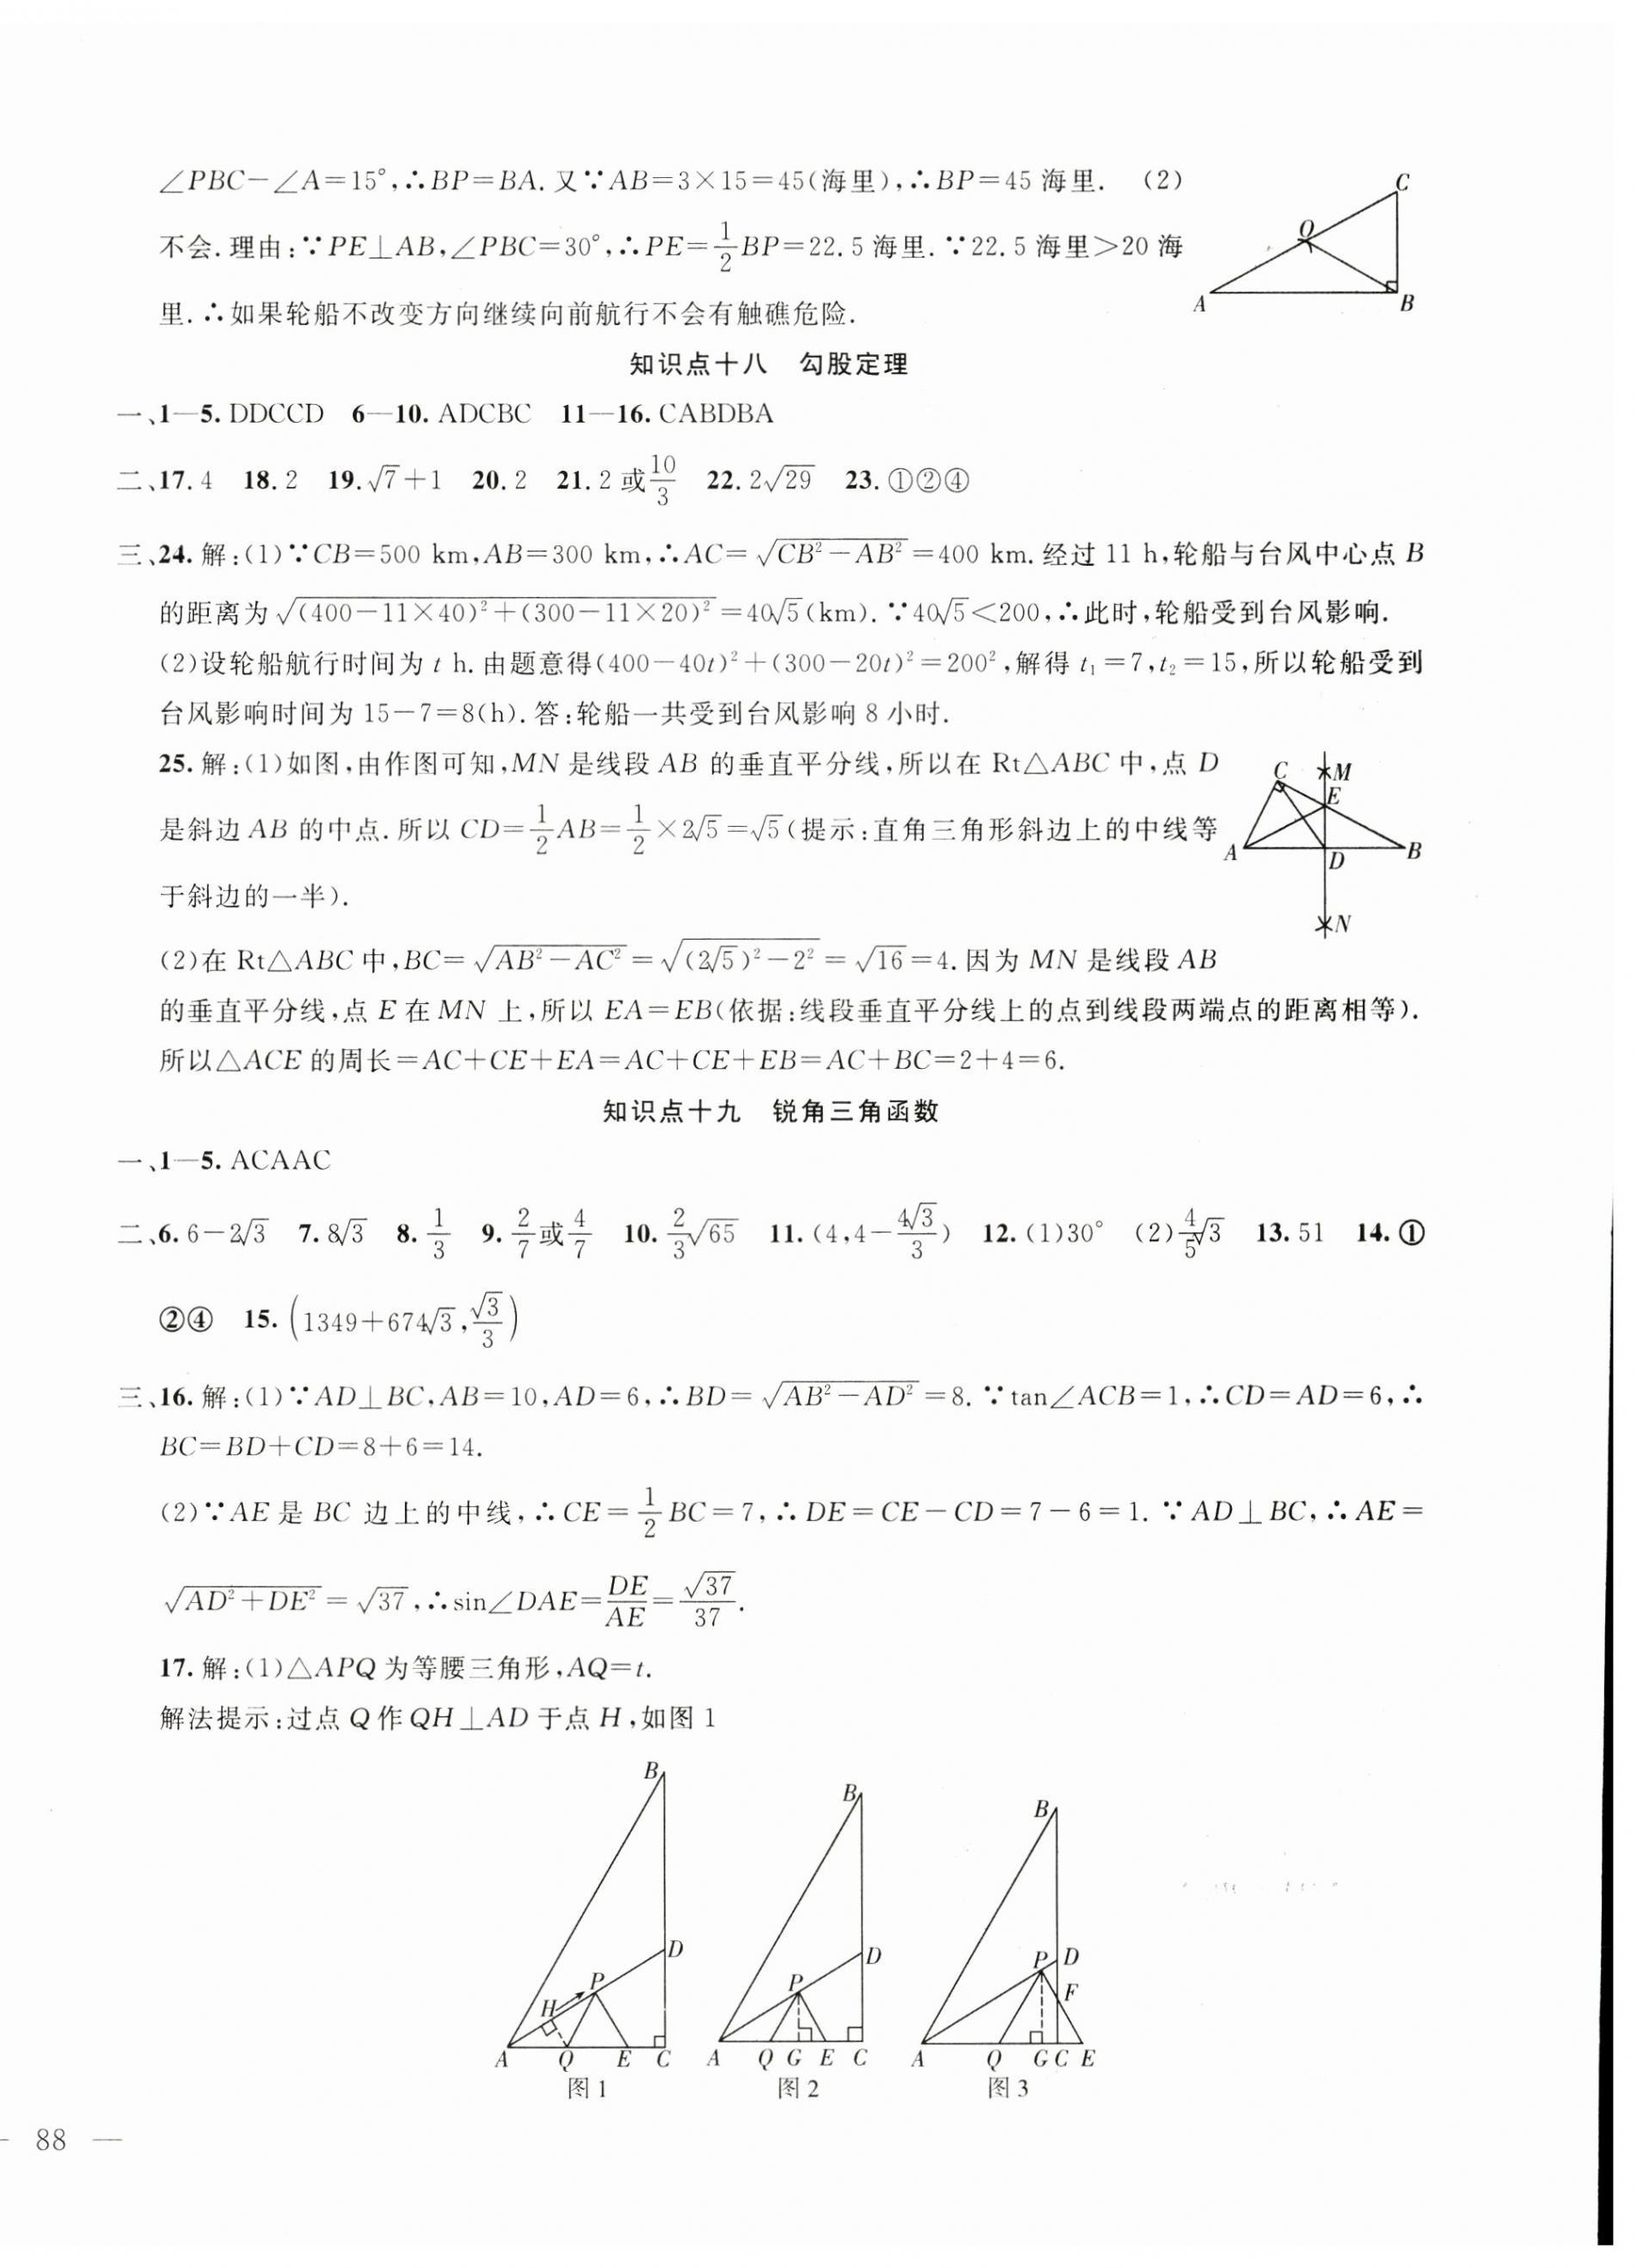 ∠PBC－∠A＝15°,∴BP＝BA.又∵AB＝3×15＝45(海里),∴BP＝45 海里. (2)
不会.理由:∵PE⊥AB,∠PBC＝30°,∴PE＝1/2BP＝22.5 海里.∵22.5 海里＞20 海
里.∴如果轮船不改变方向继续向前航行不会有触礁危险.
C
Q
A
B
知识点十八 勾股定理
一、1—5. DDCCD 6—10. ADCBC 11—16. CABDBA
二、17. 4 18. 2 19. √7＋1 20. 2 21. 2 或 10/3 22. 2√29 23. ①②④
三、24. 解:(1)∵CB＝500 km,AB＝300 km,∴AC＝√(CB²－AB²)＝400 km.经过 11 h,轮船与台风中心点 B
的距离为√((400－11×40)²＋(300－11×20)²)＝40√5(km).∵40√5＜200,∴此时,轮船受到台风影响.
(2)设轮船航行时间为 t h.由题意得(400－40t)²＋(300－20t)²＝200²,解得 t₁＝7,t₂＝15,所以轮船受到
台风影响时间为 15－7＝8(h).答:轮船一共受到台风影响 8 小时.
25. 解:(1)如图,由作图可知,MN 是线段 AB 的垂直平分线,所以在 Rt△ABC 中,点 D
是斜边 AB 的中点.所以 CD＝1/2AB＝1/2×2√5＝√5(提示:直角三角形斜边上的中线等
于斜边的一半).
C M
E
A D B
N
(2)在 Rt△ABC 中,BC＝√(AB²－AC²)＝√((2√5)²－2²)＝√16＝4.因为 MN 是线段 AB
的垂直平分线,点 E 在 MN 上,所以 EA＝EB(依据:线段垂直平分线上的点到线段两端点的距离相等).
所以△ACE 的周长＝AC＋CE＋EA＝AC＋CE＋EB＝AC＋BC＝2＋4＝6.
知识点十九 锐角三角函数
一、1—5. ACAAC
二、6. 6－2√3 7. 8√3 8. 1/3 9. 2/7或4/7 10. 2/3√65 11. (4,4－4√3/3) 12. (1)30° (2)4/5√3 13. 51 14. ①
②④ 15. (1349＋674√3,√3/3)
三、16. 解:(1)∵AD⊥BC,AB＝10,AD＝6,∴BD＝√(AB²－AD²)＝8.∵tan∠ACB＝1,∴CD＝AD＝6,∴
BC＝BD＋CD＝8＋6＝14.
(2)∵AE 是 BC 边上的中线,∴CE＝1/2BC＝7,∴DE＝CE－CD＝7－6＝1.∵AD⊥BC,∴AE＝
√(AD²＋DE²)＝√37,∴sin∠DAE＝DE/AE＝√37/37.
17. 解:(1)△APQ 为等腰三角形,AQ＝t.
解法提示:过点 Q 作 QH⊥AD 于点 H,如图 1
B
D
P
H
A Q E C
图 1
B
D
P
A Q G E C
图 2
B
P D
F
A Q G C E
图 3
88